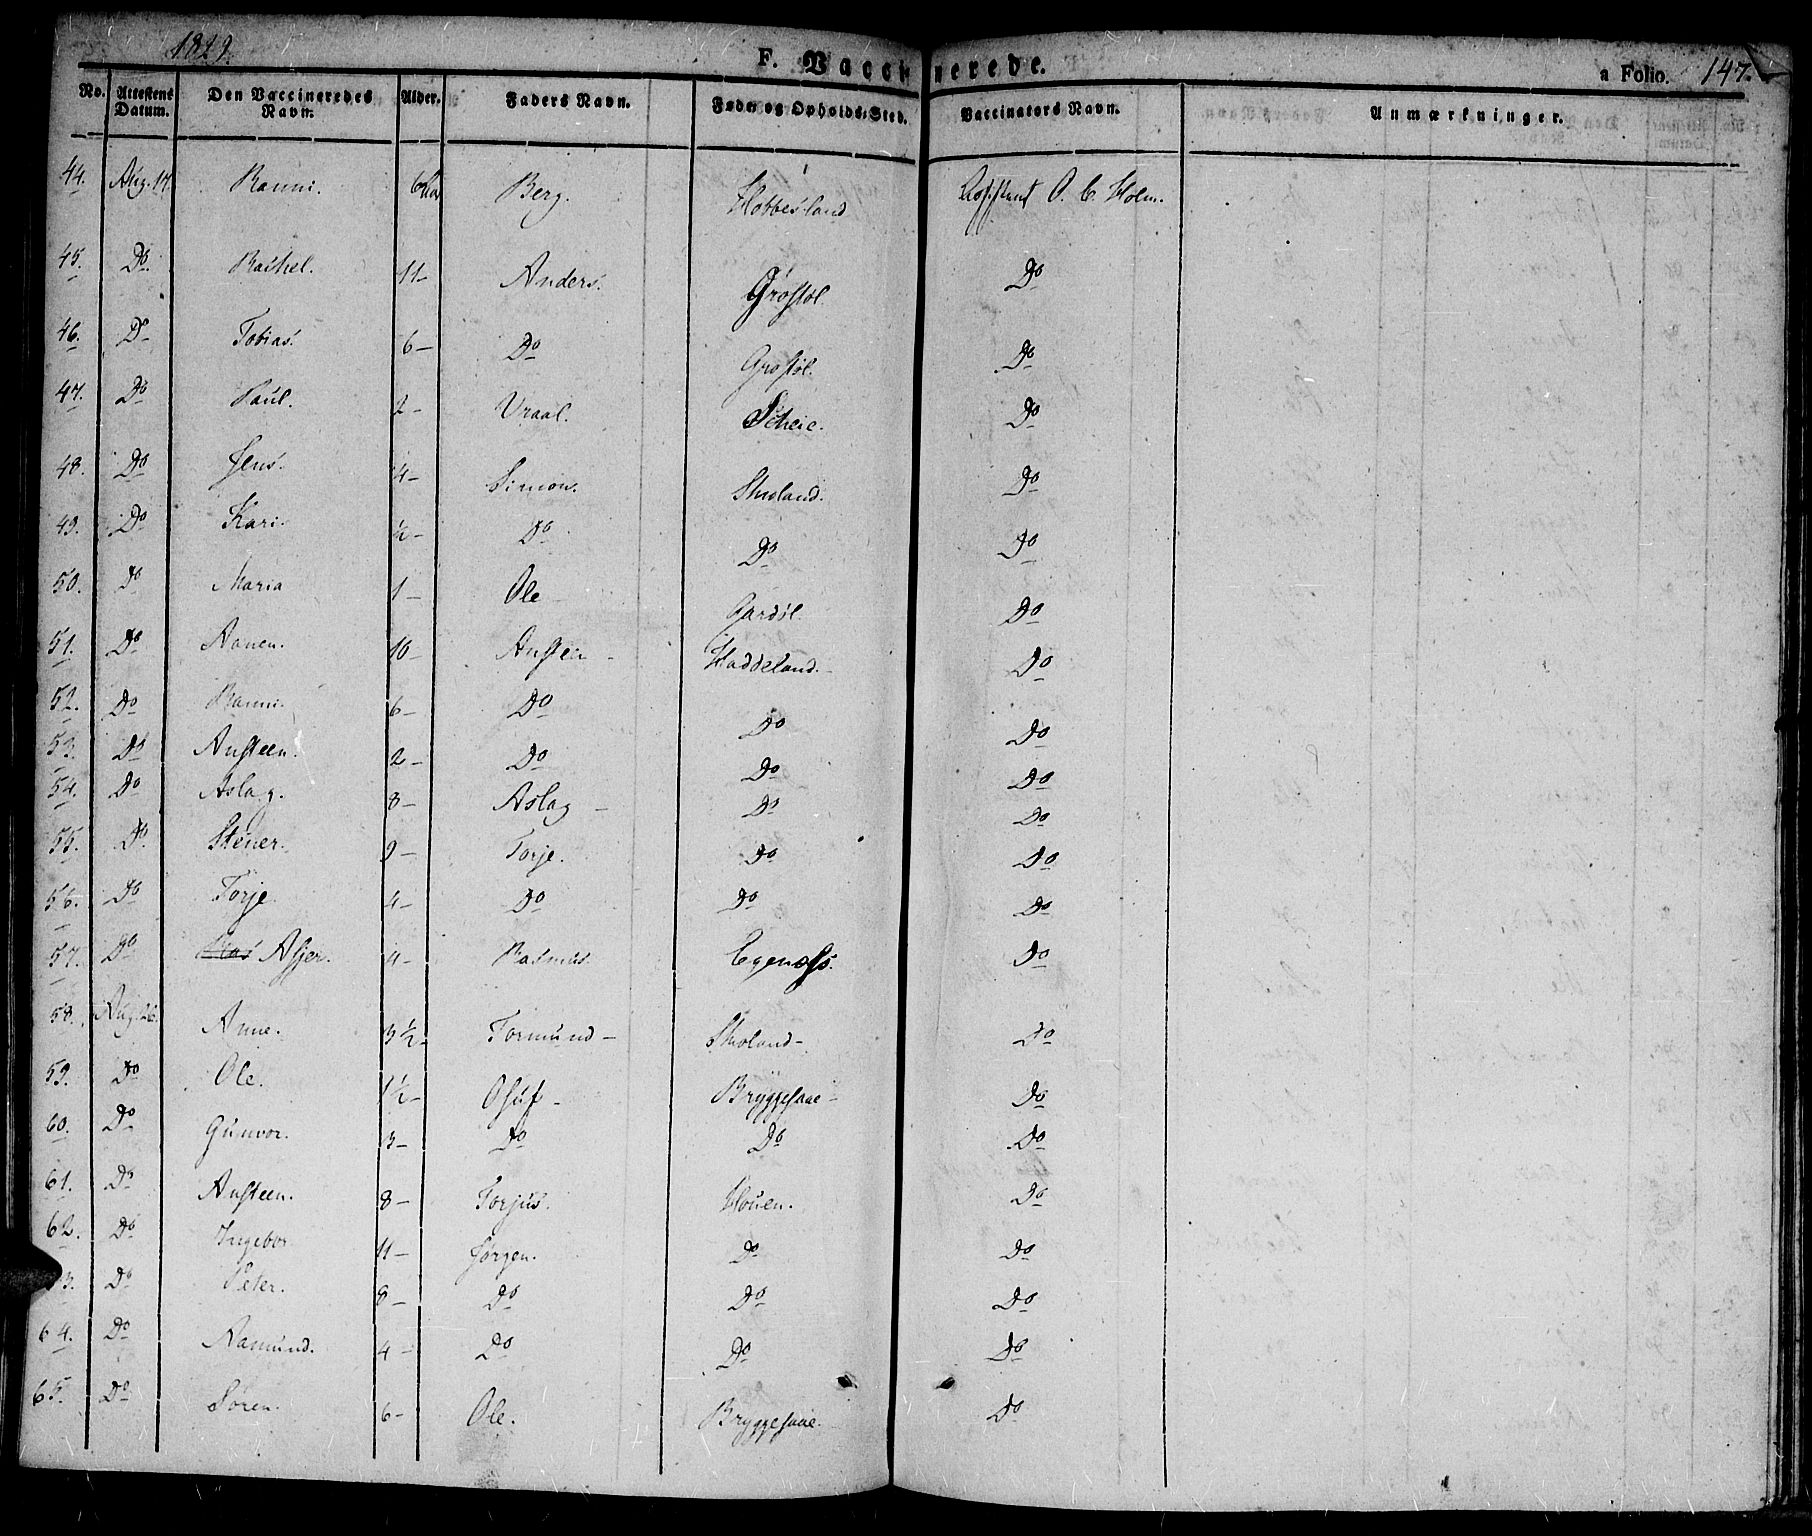 1829.
F. Vaccinerede.
a Folio. 147.
No. Attestens Datum. Den Vaccineredes Navn. Alder. Faders Navn. Føde- og Opholds-Sted. Vaccinators Navn. Anmærkninger.
44. Aug. 17. Ranni. 6 Berg. Hobbesland O. C. Holm.
45. Do Rachel. 11- Anders. Grostøl. Do
46. Do Tobias. 6- Do Grostøl. Do
47. Do Paul. 2- Vraal. Scheie. Do
48. Do Jens. 4- Simon. Smoland. Do
49. Do Kari. ½- Do Do Do
50. Do Maria 1- Ole Gardøl. Do
51. Do Aanen. 10- Austen - Haddeland. Do
52. Do Ranni. 6- Do Do Do
53. Do Austeen. 2- Do Do Do
54. Do Aslag. 8- Aslag - Do Do
55. Do Stener. 9- Torje. Do Do
56. Do Torje 4- Do Do Do
57. Do Asjer. 4- Rasmus Do
58. Aug. 26. Anne. 3½- Tormund- Smoland- Do
59. Do Ole. 1½- Osuf- Bryggesaae- Do
60. Do Gunvor. 3- Do Do Do
61. Do Austeen. 8- Torjus. Houen. Do
62. Do Ingebor 11- Jørgen. Do Do
63. Do Peter. 8- Do Do Do
64. Do Aamund. 4- Do Do Do
65. Do Søren. 6- Ole. Bryggesaae. Do